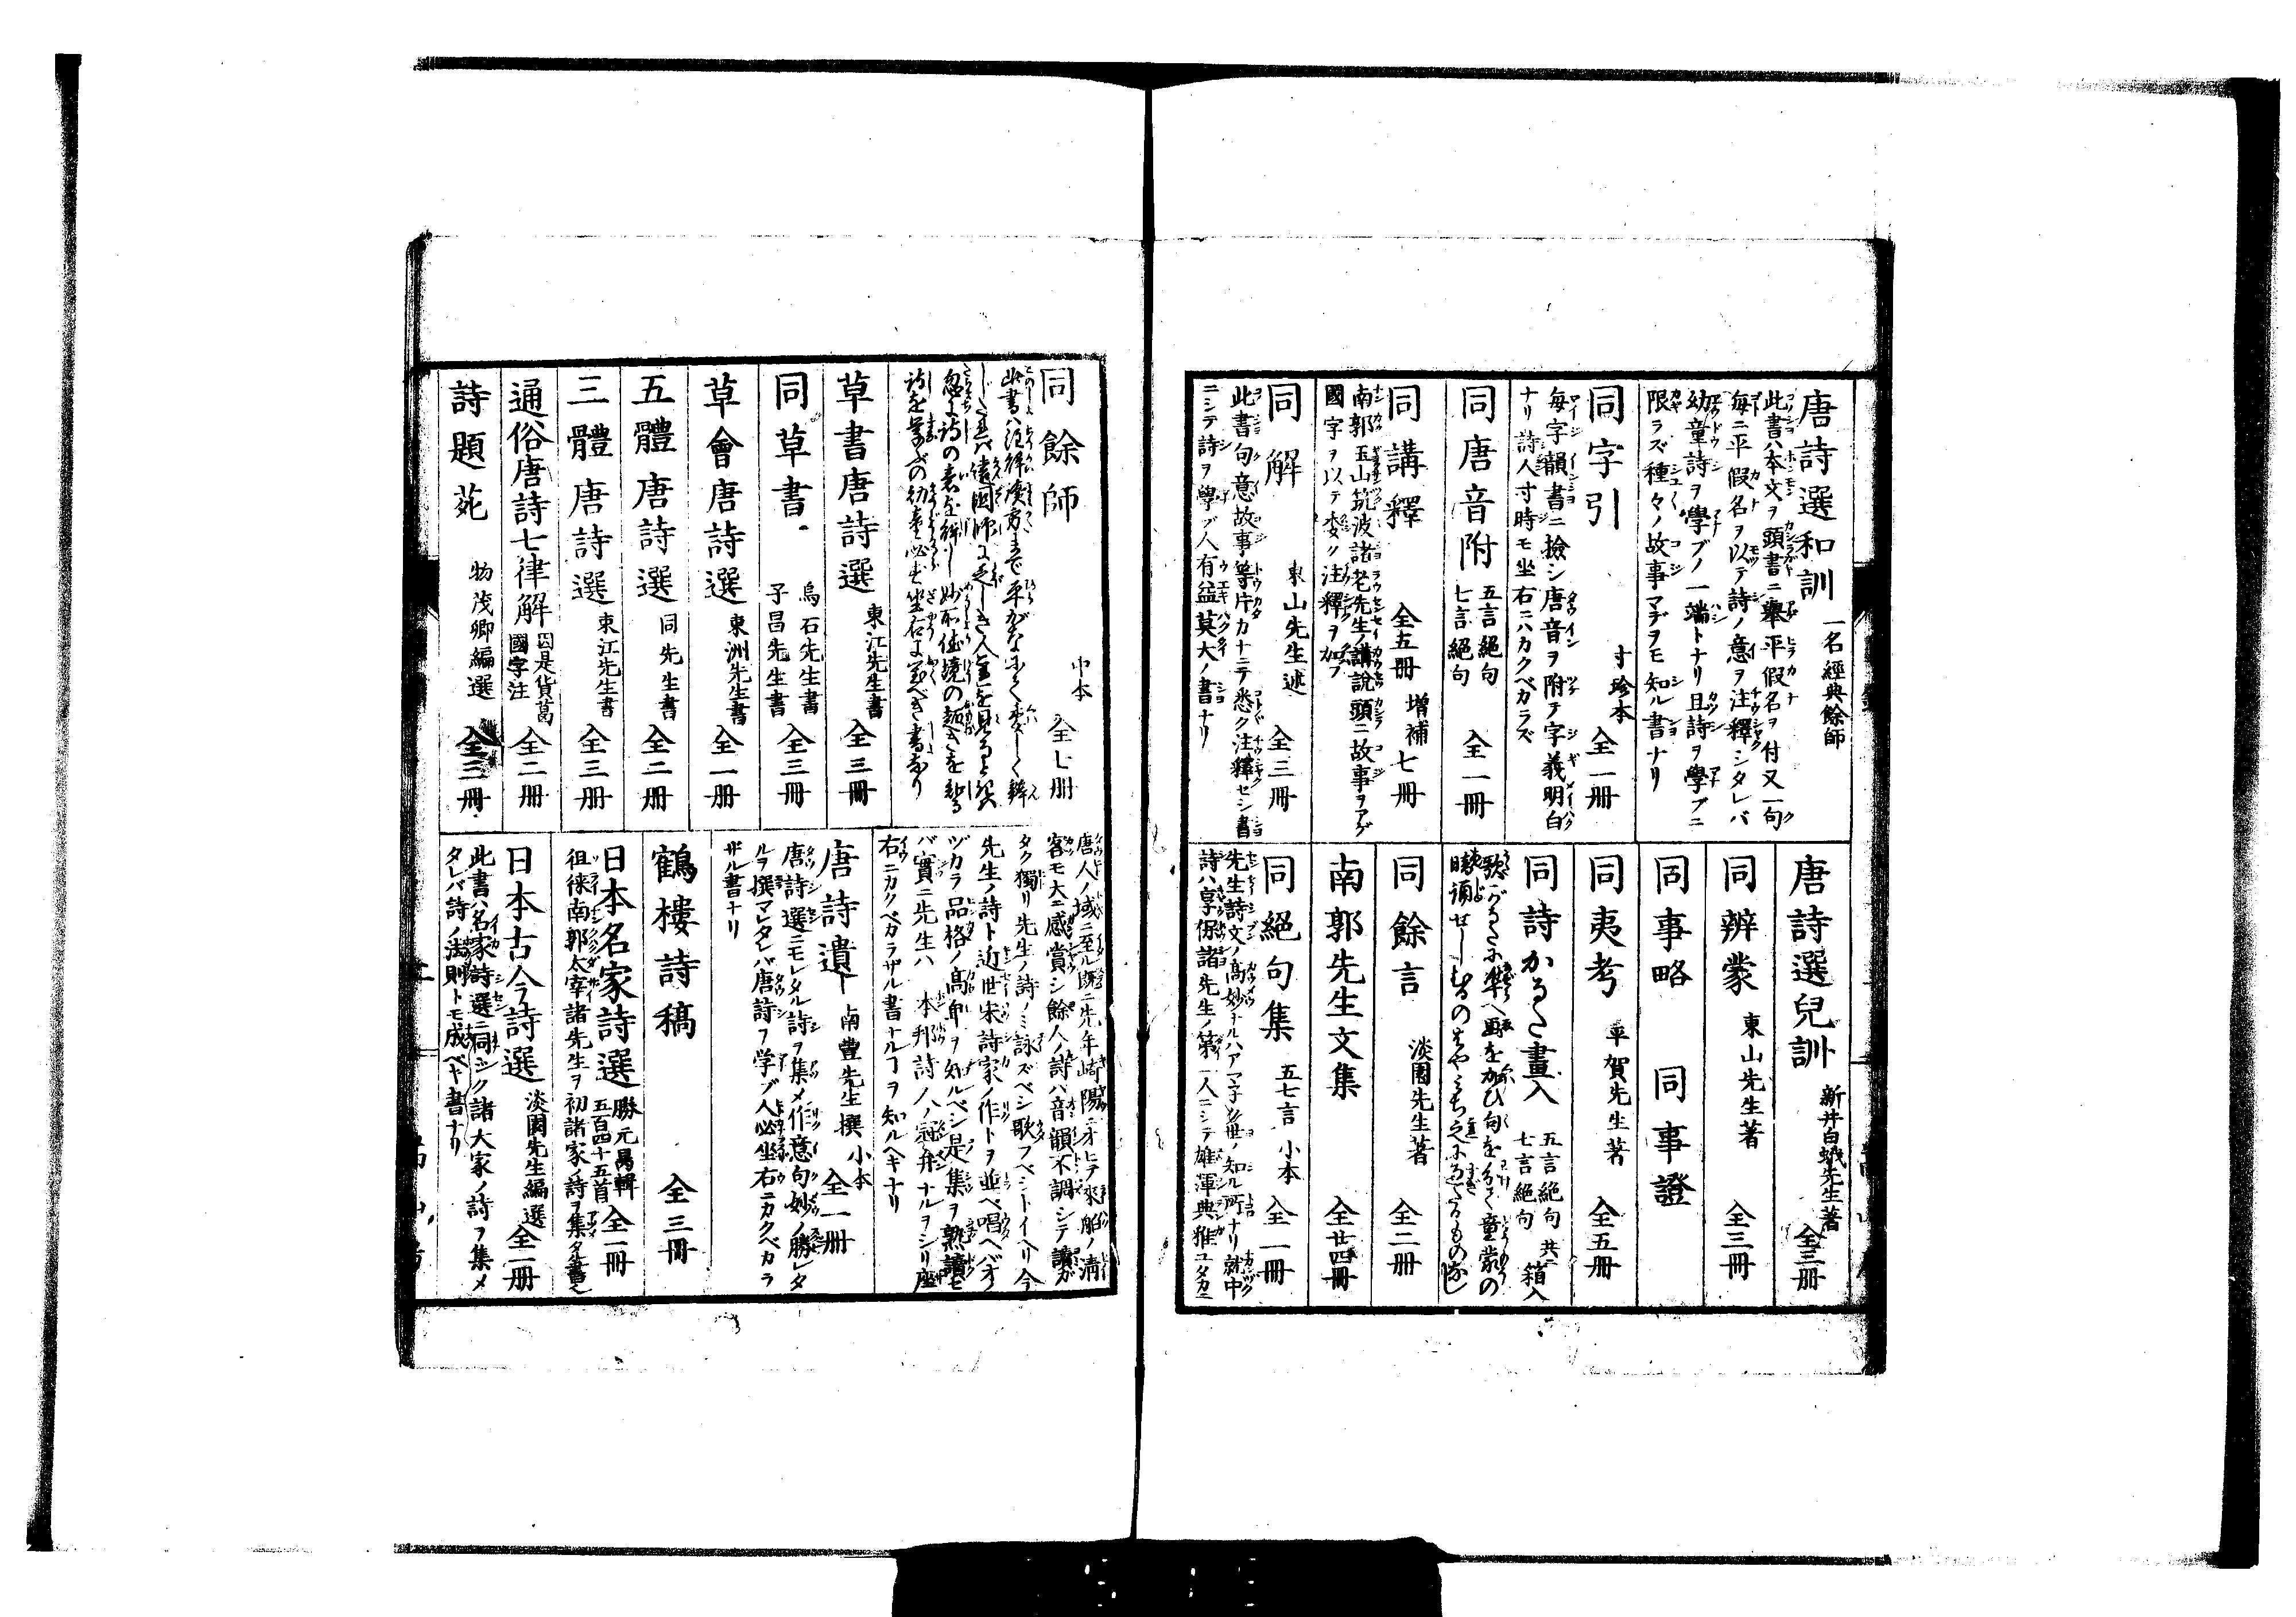 唐詩選和訓 一名經典餘師
此書ハ本文ヲ頭書ニ舉平假名ヲ付又一句
毎ニ平假名ヲ以テ詩ノ意ヲ注釋シタレバ
幼童詩ヲ學ブノ一端トナリ且詩ヲ學ブニ
限ラズ種々ノ故事マデヲモ知ル書ナリ
同字引 寸珍本 全一冊
毎字韻書ニ撿シ唐音ヲ附テ字義明白
ナリ詩人寸時モ坐右ニハカクベカラズ
同唐音附 五言絕句 七言絕句 全一冊
同講釋 全五冊 增補七冊
南郭玉山筑波諸老先生ノ講說頭ニ故事ヲアゲ
國字ヲ以テ委ク注釋ヲ加フ
同解 東山先生述 全三冊
此書句意故事等片カナニテ悉ク注釋セシ書
ニシテ詩ヲ學ブ人有益莫大ノ書ナリ
唐詩選兒訓 新井白蛾先生著 全三冊
同辨蒙 東山先生著 全三冊
同事略 同事證
同夷考 平賀先生著 全五冊
同詩かるた畫入 五言絕句 七言絕句 共ニ箱入
歌がるたに準へ
同餘言 淡園先生著 全二冊
南郭先生文集 全廿四冊
同絕句集 五七言 小本 全一冊
先生詩文ノ高妙ナルハアマ子ク世ノ知ル所ナリ就中
詩ハ享保諸先生ノ第一人ニシテ雄渾典雅ユタカニ
同餘師 中本 全七冊
草書唐詩選 東江先生書 全三冊
同草書 烏石先生書 子昌先生書 全三冊
草會唐詩選 東洲先生書 全一冊
五體唐詩選 同先生書 全二冊
三體唐詩選 東江先生書 全三冊
通俗唐詩七律解 因是貨葛 國字注 全二冊
詩題苑 物茂卿編選 全三冊
唐人ノ域ニ至ル既ニ先年崎陽ニオヒテ來舶ノ清
客モ大ニ感賞シ餘人ノ詩ハ音韻不調シテ讀ガ
タク獨リ先生ノ詩ノミ詠ズベシ歌フベシトイヘリ今
先生ノ詩ト近世宋詩家ノ作トヲ並ベ唱ヘバオノ
ヅカラ品格ノ高卑ヲ知ルベシ是集ヲ熟讀セ
バ實ニ先生ハ 本邦詩人ノ冠弁ナルヲシリ座
右ニカクベカラザル書ナルヿヲ知ルヘキナリ
唐詩遺 南豊先生撰 小本 全一冊
唐詩選ニモレタル詩ヲ集メ作意句妙ノ勝レタ
ルヲ撰マレタレバ唐詩ヲ学ブ人必坐右ニカクベカラ
ザル書ナリ
鶴樓詩稿 全三冊
日本名家詩選 勝元昜輯 五百四十五首 全一冊
徂徠南郭太宰諸先生ヲ初諸家ノ詩ヲ集タル書也
日本古今詩選 淡園先生編選 全二册
此書ハ名家詩選ニ同シク諸大家ノ詩ヲ集メ
タレバ詩ノ法則トモ成ベキ書ナリ